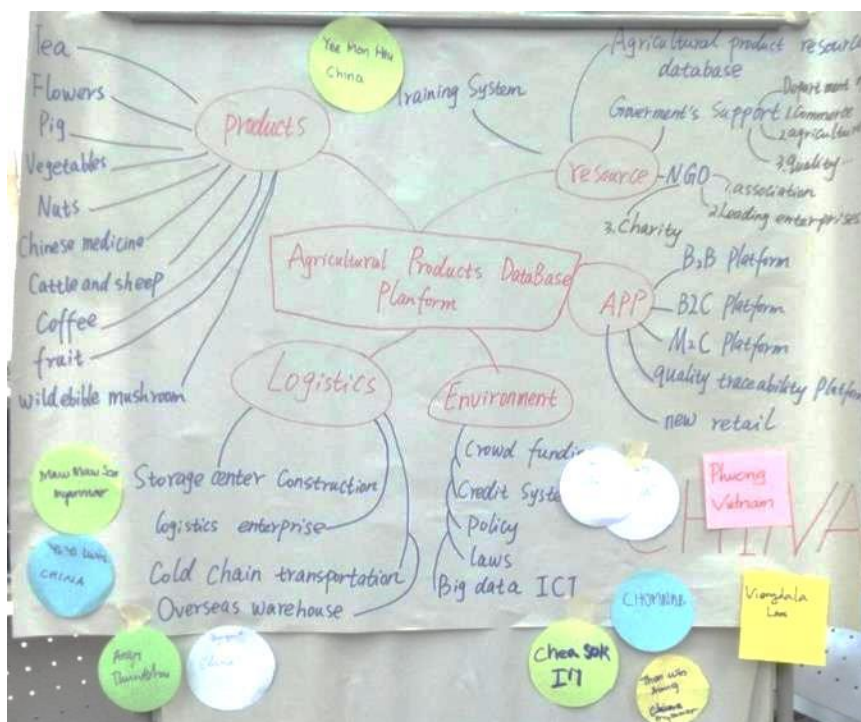 Tea
Flowers
Pig
Vegetables
Nuts
Chinese medicine
Cattle and sheep
Coffee
fruit
wild edible mushroom
products
Yee Mon Hsu
China
Training System
Agricultural product resource
database
Goverment's Support
Department
1.Commerce
2.agricultur
3.quality
resource
NGO
1.association
2.Leading enterprises
3.Charity
Agricultural Products DataBase
Planform
APP
B2B Platform
B2C Platform
M2C Platform
quality traceability Platform
new retail
Logistics
Storage center Construction
logistics enterprise
Cold Chain transportation
Overseas warehouse
Environment
Crowd fundin
Credit System
Policy
laws
Big data ICT
CHINA
Phuong
Vietnam
Myanmar
CHINA
China
Chea Sok
CHOMNAB
Viengdala
Lao
Than Win
Aung
myanmar